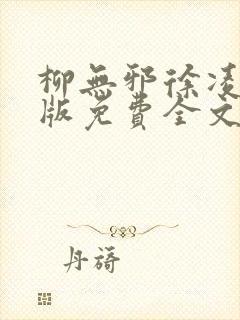 柳無邪徐凌
版免費全文
丹蒔